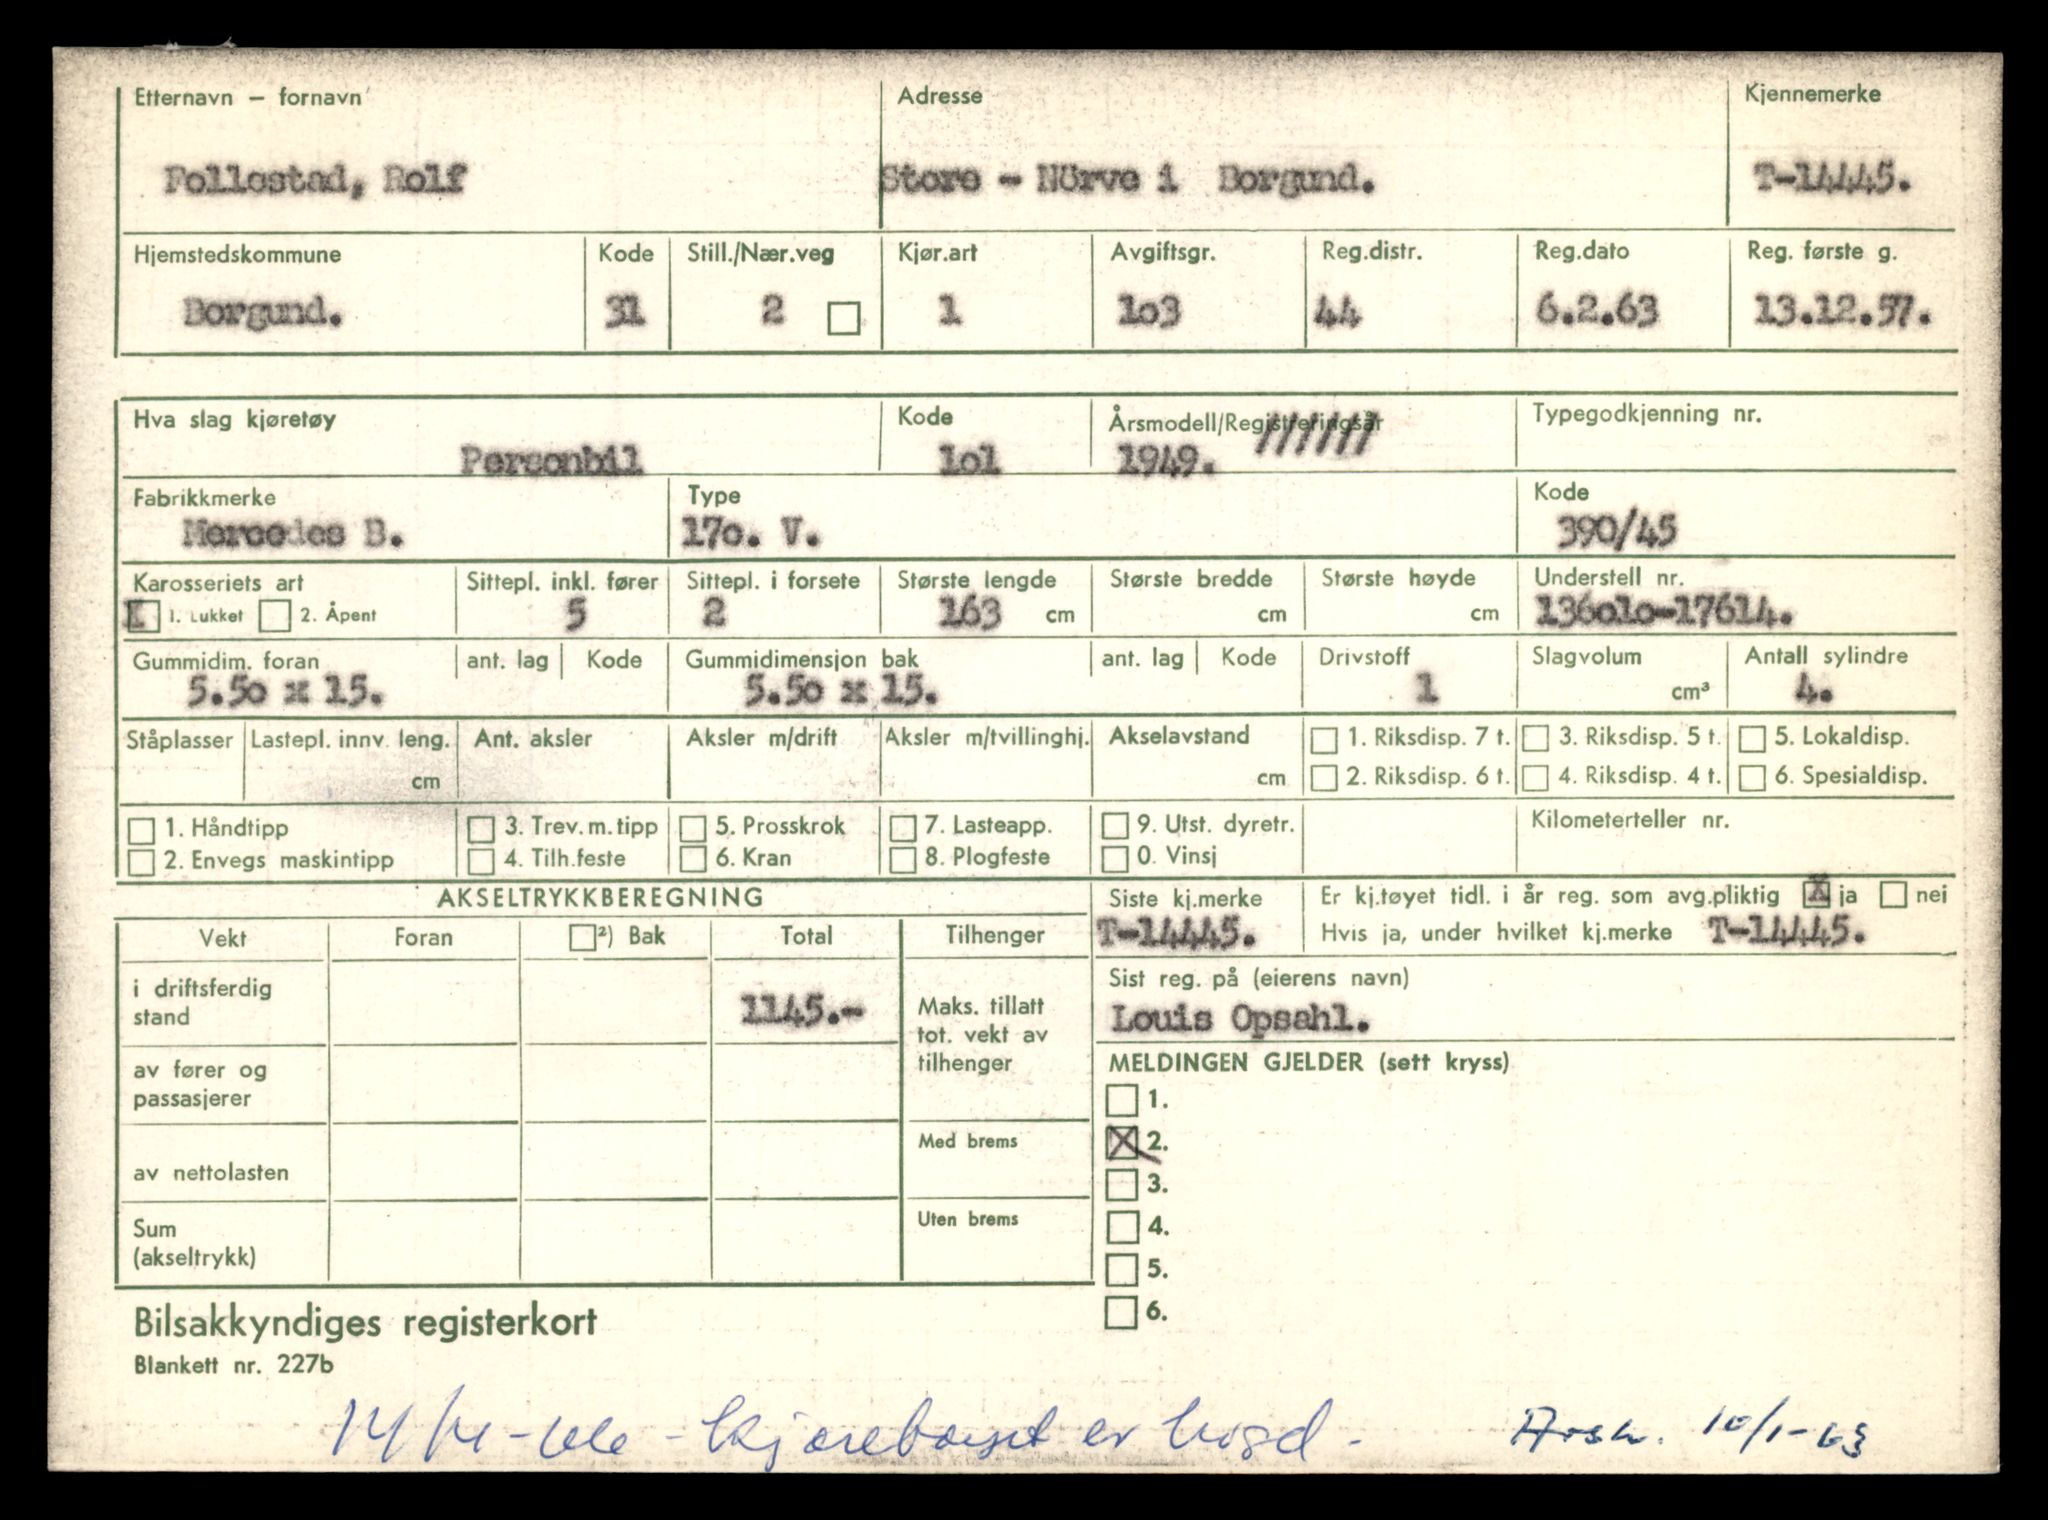 Etternavn – fornavn Adresse Kjennemerke
Follestad, Rolf Store - Nörve i Borgund. T-14445.
Hjemstedskommune Kode Still./Nær.veg Kjør.art Avgiftsgr. Reg.distr. Reg.dato Reg. første g.
Borgund. 31 2 1 1o3 44 6.2.63 13.12.57.
Hva slag kjøretøy Kode Årsmodell/Registreringsår Typegodkjenning nr.
Personbil 1o1 1949. //////
Fabrikkmerke Type Kode
Mercedes B. 17o. V. 390/45
Karosseriets art Sittepl. inkl. fører Sittepl. i forsete Største lengde Største bredde Største høyde Understell nr.
X 1. Lukket 2. Åpent 5 2 163 cm cm cm 136o1o-17614.
Gummidim. foran ant. lag Kode Gummidimensjon bak ant. lag Kode Drivstoff Slagvolum Antall sylindre
5.5o x 15. 5.5o x 15. 1 cm³ 4.
Ståplasser Lastepl. innv. leng. Ant. aksler Aksler m/drift Aksler m/tvillinghj. Akselavstand 1. Riksdisp. 7 t. 3. Riksdisp. 5 t. 5. Lokaldisp.
cm cm 2. Riksdisp. 6 t. 4. Riksdisp. 4 t. 6. Spesialdisp.
1. Håndtipp 3. Trev. m. tipp 5. Prosskrok 7. Lasteapp. 9. Utst. dyretr. Kilometerteller nr.
2. Envegs maskintipp 4. Tilh.feste 6. Kran 8. Plogfeste 0. Vinsj
AKSELTRYKKBEREGNING Siste kj.merke Er kj.tøyet tidl. i år reg. som avg.pliktig X ja nei
T-14445. Hvis ja, under hvilket kj.merke T-14445.
Vekt Foran ²) Bak Total Tilhenger
Sist reg. på (eierens navn)
i driftsferdig
stand 1145.- Maks. tillatt
tot. vekt av
tilhenger
Louis Opsahl.
av fører og
passasjerer
MELDINGEN GJELDER (sett kryss)
1.
Med brems X 2.
av nettolasten 3.
Uten brems 4.
Sum
(akseltrykk) 5.
6.
Bilsakkyndiges registerkort
Blankett nr. 227b
kjøreforbudet er hevd - 10/1-63